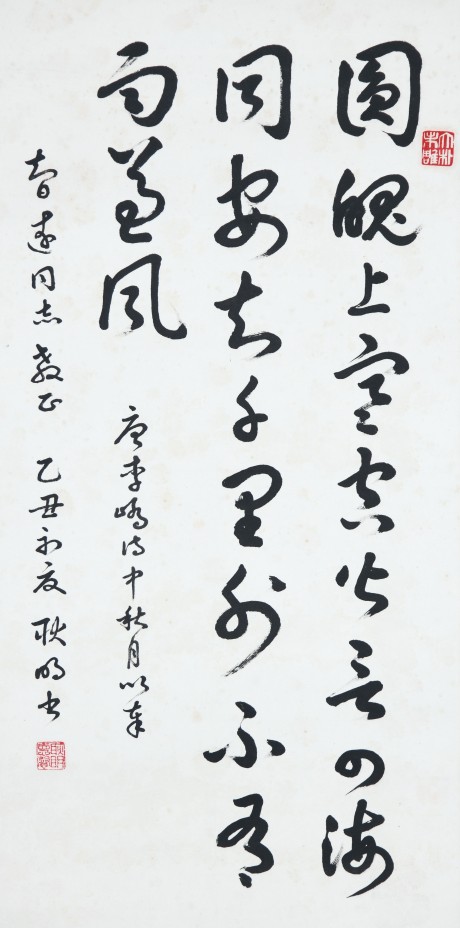 大朴未雕
圓魄上寒空皆言四海
同安知千里外不有
雨兼风
唐李嶠诗中秋月以奉
智远同志教正 乙丑初夏 耿明书